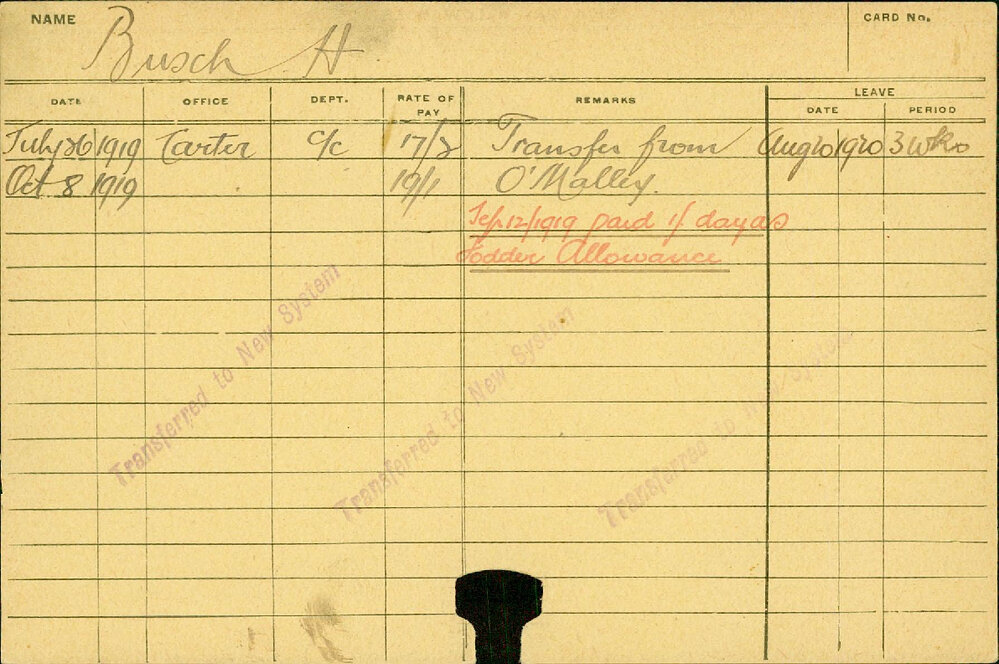 NAME Busch H CARD No.
DATE OFFICE DEPT. RATE OF PAY REMARKS LEAVE
DATE PERIOD
July 26 1919 Carter C/c 17/2 Transfer from Aug 20 1920 3 wks
Oct 8 1919 19/1 O'Malley.
Sep 12/1919 paid 1/ day as
Fodder Allowance
Transferred to New System
Transferred to New System
Transferred to New System